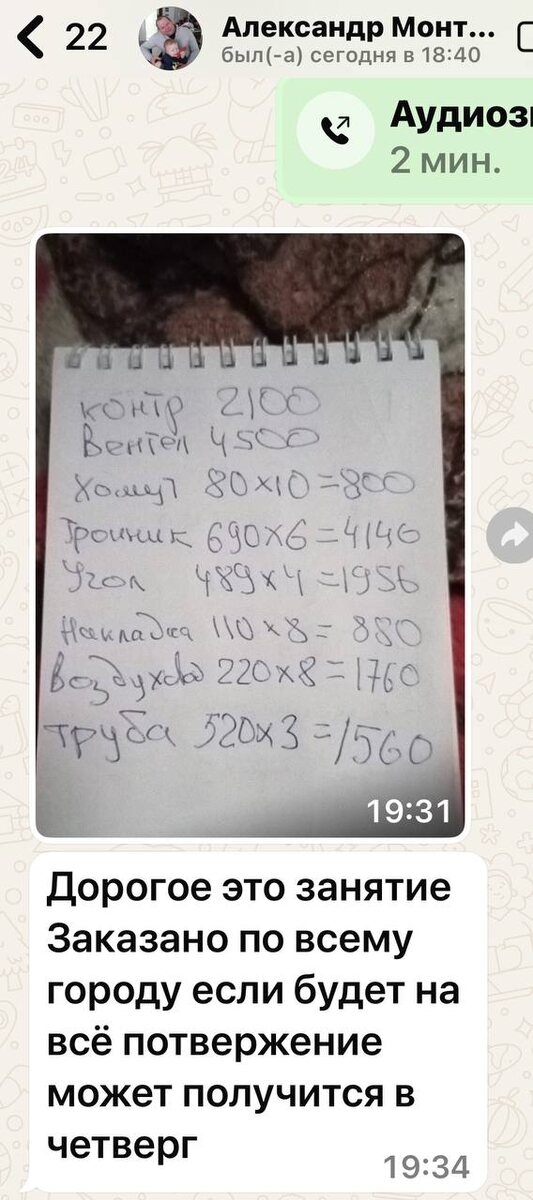 22
Александр Монт...
был(-а) сегодня в 18:40
Аудиоз
2 мин.
контр 2100
Вентел 4500
Хомут 80х10=800
Тройник 690х6=4146
Угол 489х4=1956
Накладка 110х8= 880
Воздухово 220х8=1760
труба 520х3=1560
19:31
Дорогое это занятие
Заказано по всему
городу если будет на
всё потвержение
может получится в
четверг
19:34